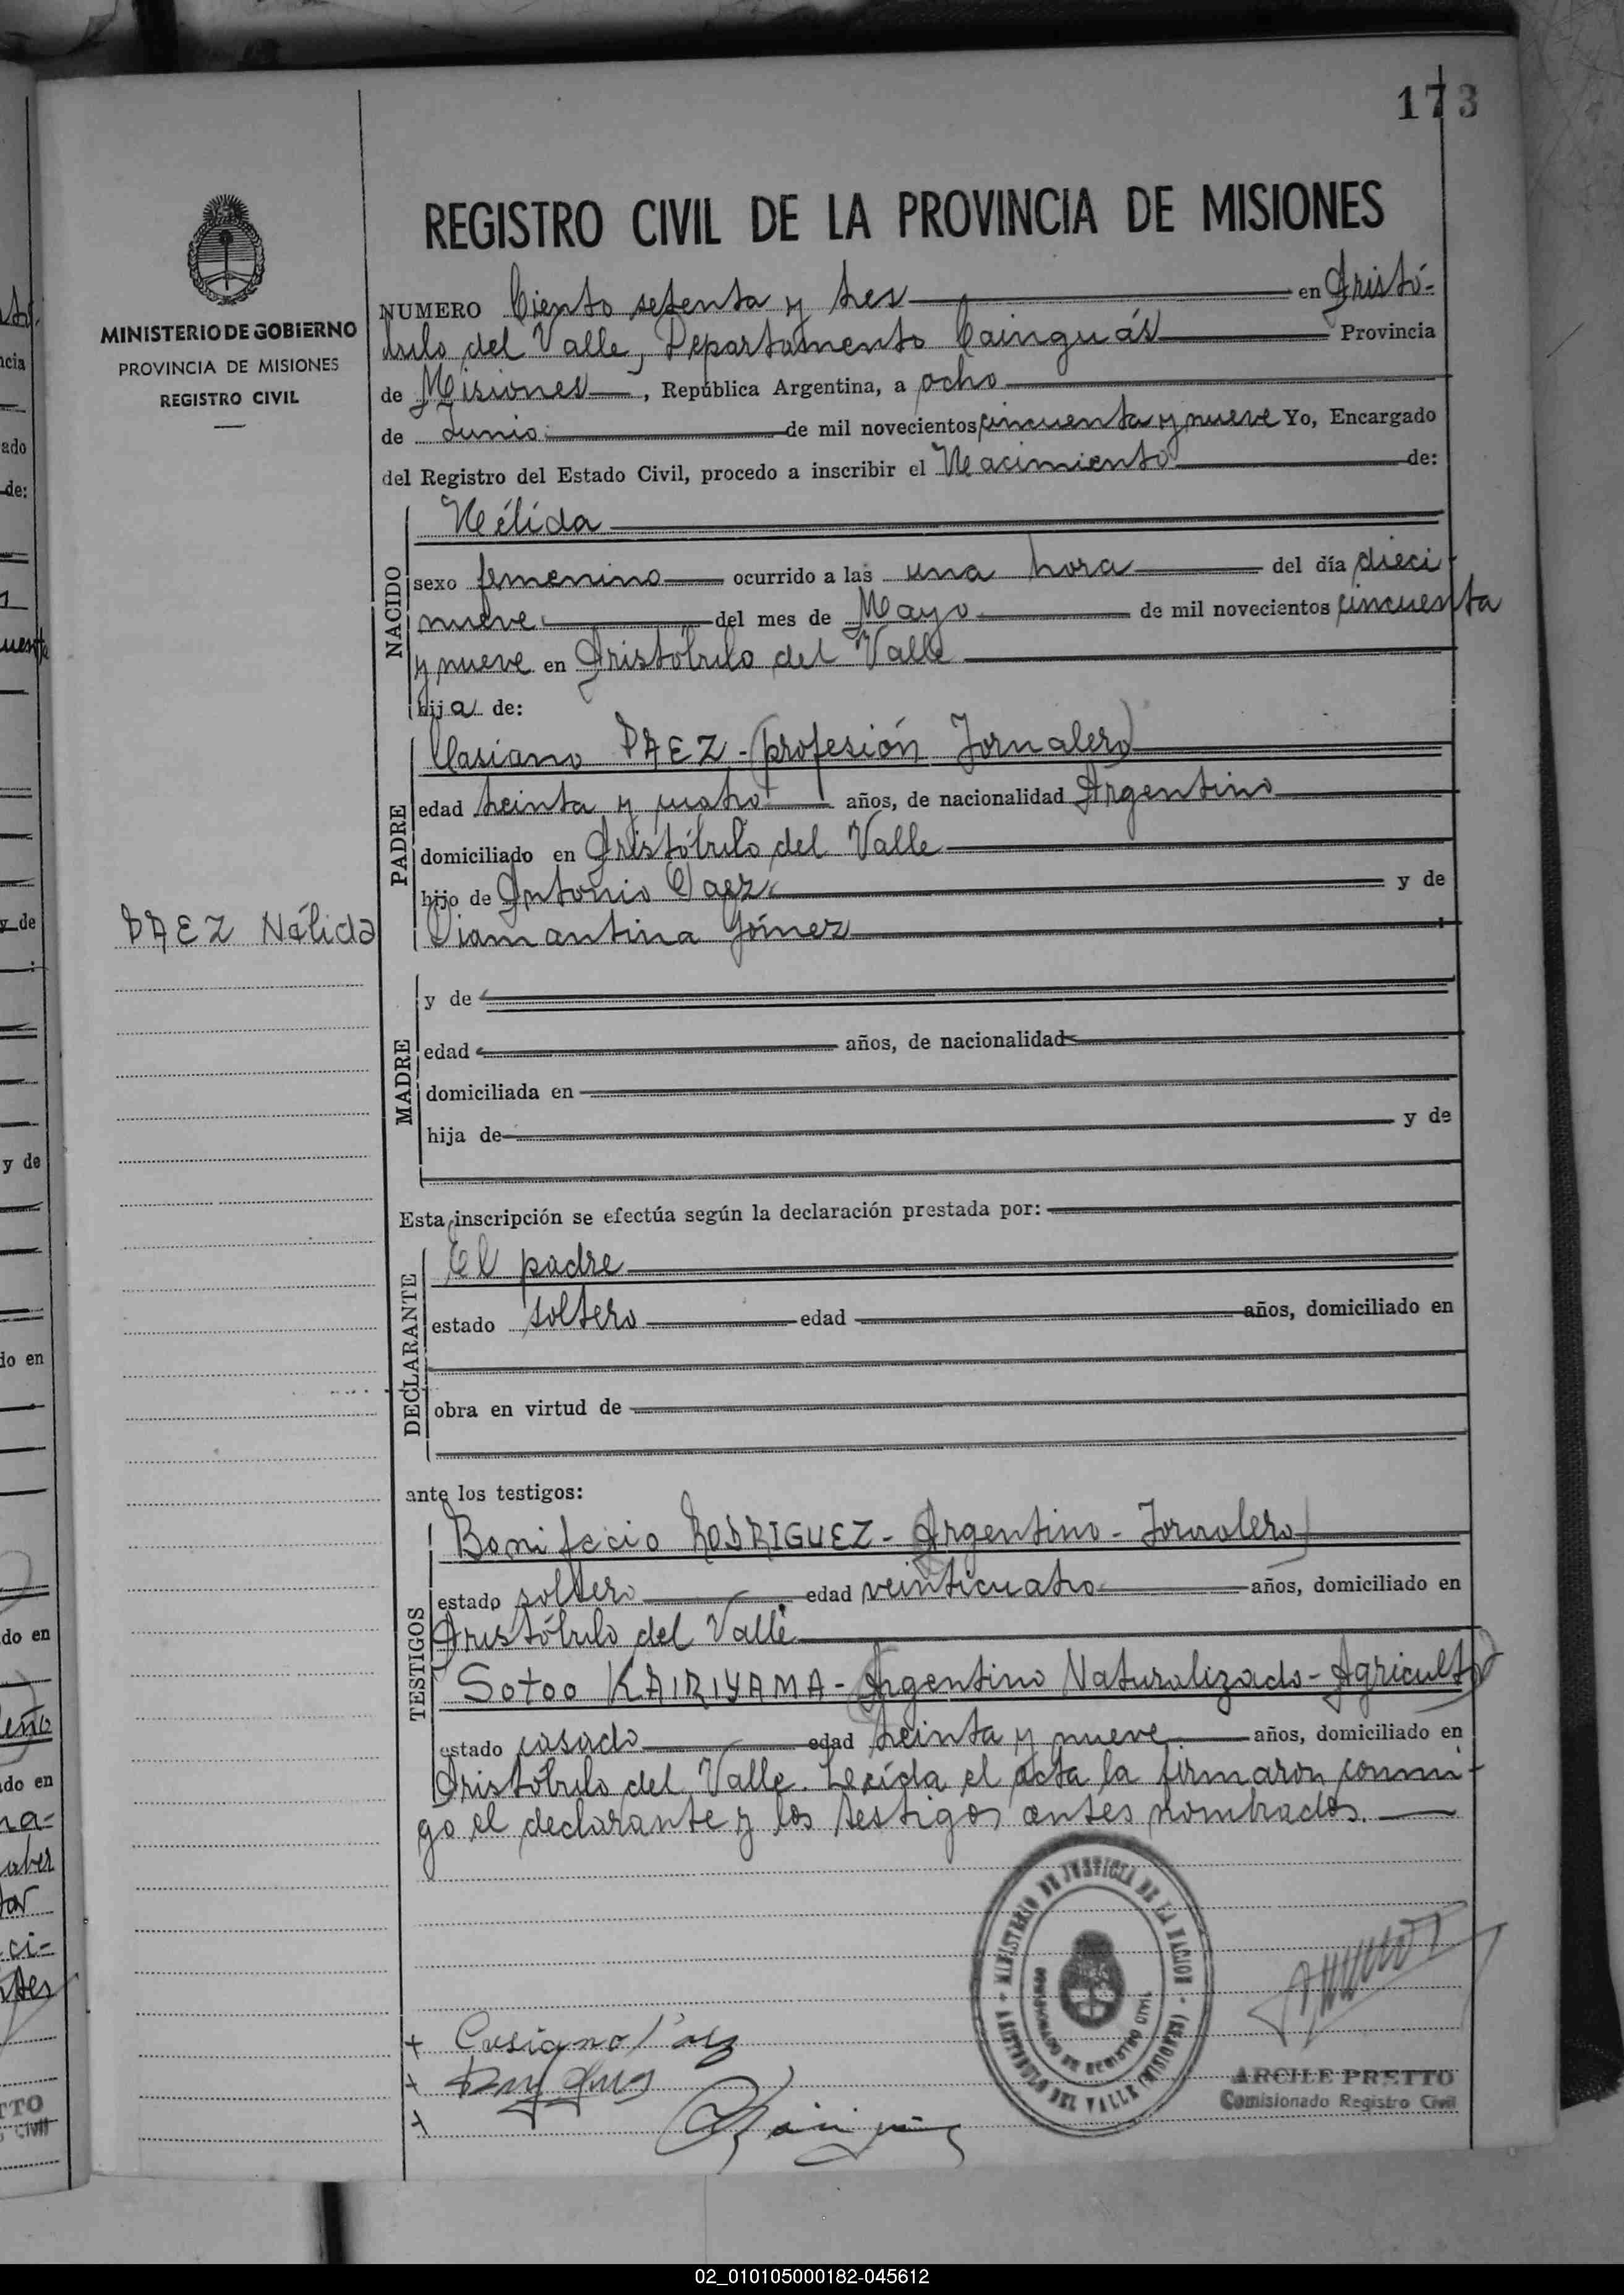 173
REGISTRO CIVIL DE LA PROVINCIA DE MISIONES
MINISTERIO DE GOBIERNO
PROVINCIA DE MISIONES
REGISTRO CIVIL
NUMERO Ciento setenta y tres en Aristó-
bulo del Valle, Departamento Cainguás Provincia
de Misiones, República Argentina, a ocho
de Junio de mil novecientos cincuenta y nueve Yo, Encargado
del Registro del Estado Civil, procedo a inscribir el Nacimiento de:
NACIDO
Nélida
sexo femenino ocurrido a las una hora del día dieci
nueve del mes de Mayo de mil novecientos cincuenta
y nueve en Aristóbulo del Valle
hija de:
PADRE
Casiano PAEZ - (profesión Jornalero)
edad treinta y cuatro años, de nacionalidad Argentino
domiciliado en Aristóbulo del Valle
hijo de Antonio Paez y de
Diamantina Gómez
PAEZ Nélida
MADRE
y de
edad años, de nacionalidad
domiciliada en
hija de y de
Esta inscripción se efectúa según la declaración prestada por:
DECLARANTE
El padre
estado soltero edad años, domiciliado en
obra en virtud de
ante los testigos:
TESTIGOS
Bonifacio RODRIGUEZ - (Argentino - Jornalero)
estado soltero edad veinticuatro años, domiciliado en
Aristóbulo del Valle
Sotoo KAIRIYAMA - (Argentino Naturalizado - Agricultor)
estado casado edad treinta y nueve años, domiciliado en
Aristóbulo del Valle. Leída el acta la firmaron conmi-
go el declarante y los testigos antes nombrados.
MINISTERIO DE JUSTICIA DE LA NACION
ARISTOBULO DEL VALLE (MISIONES)
Casiano Paez
ARCILE PRETTO
Comisionado Registro Civil
02_010105000182-045612